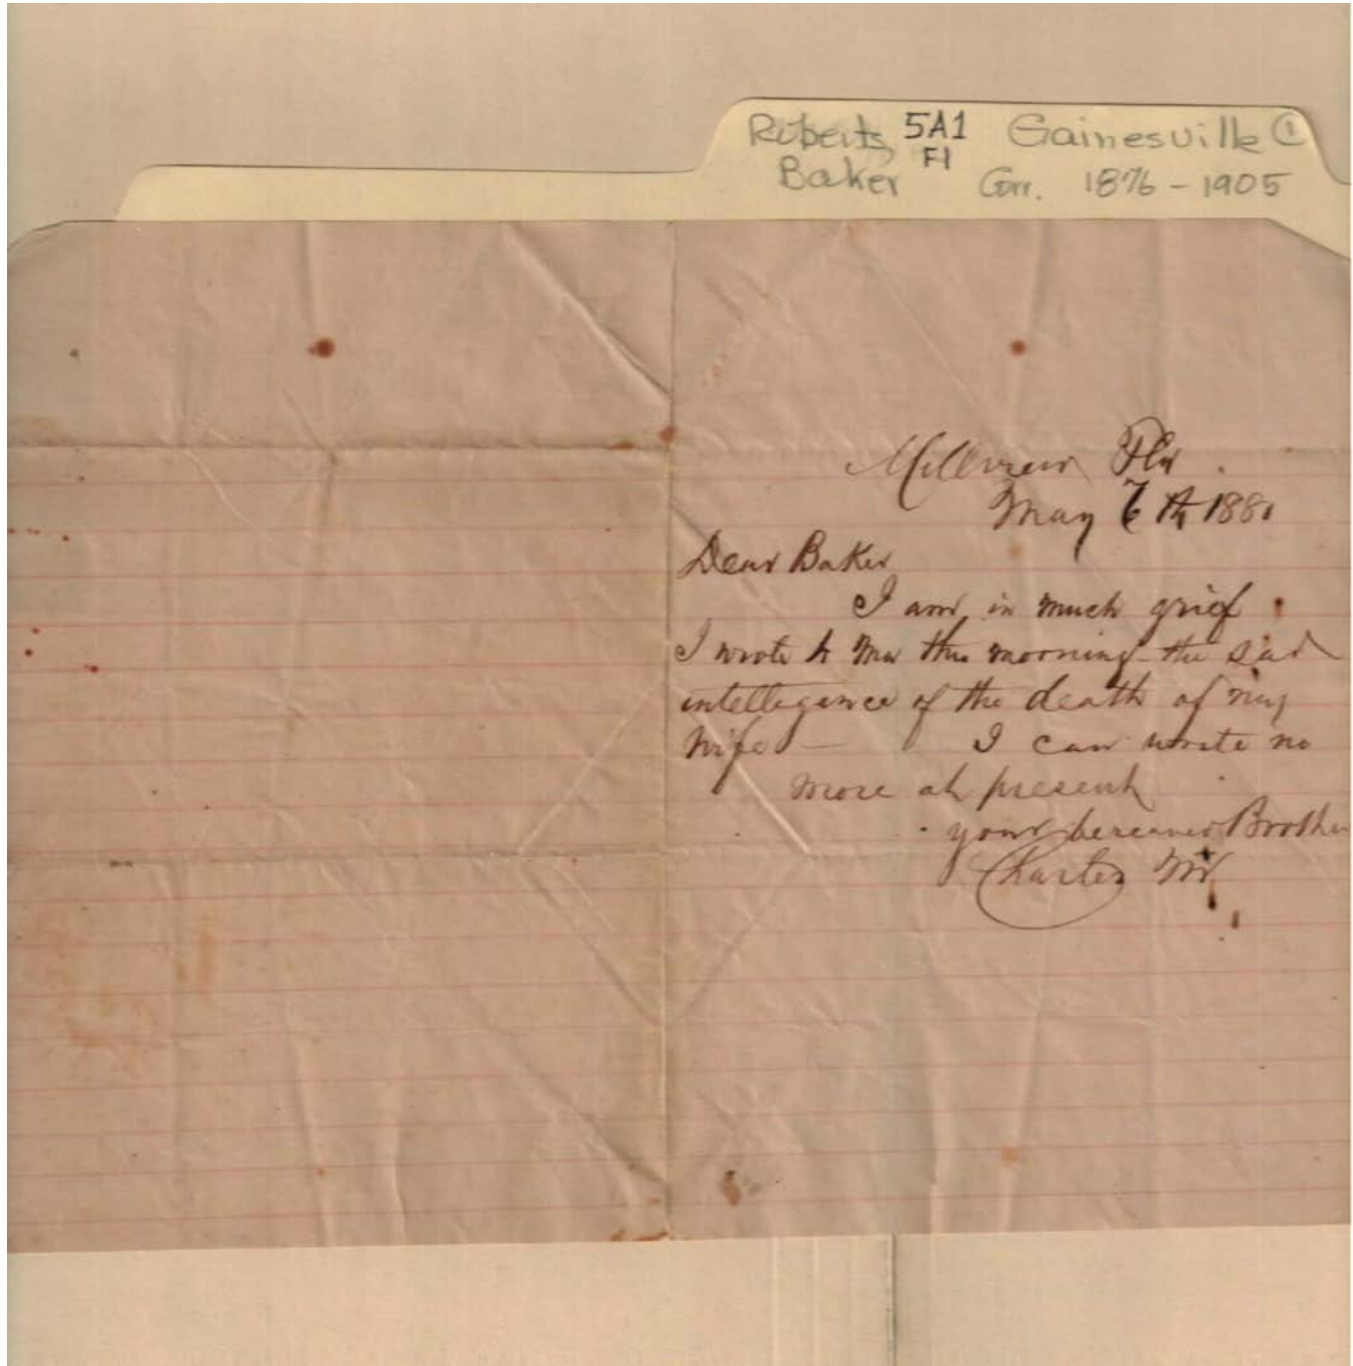 Roberts, 5A1 Gainesville ①
Baker F1 Corr. 1876-1905
Millview Fla.
May 6th 1881
Dear Baker
I am in much grief
I wrote to Ma this morning the sad
intellegence of the death of my
wife — I can write no
more at present
your bereaved Brother
Charles